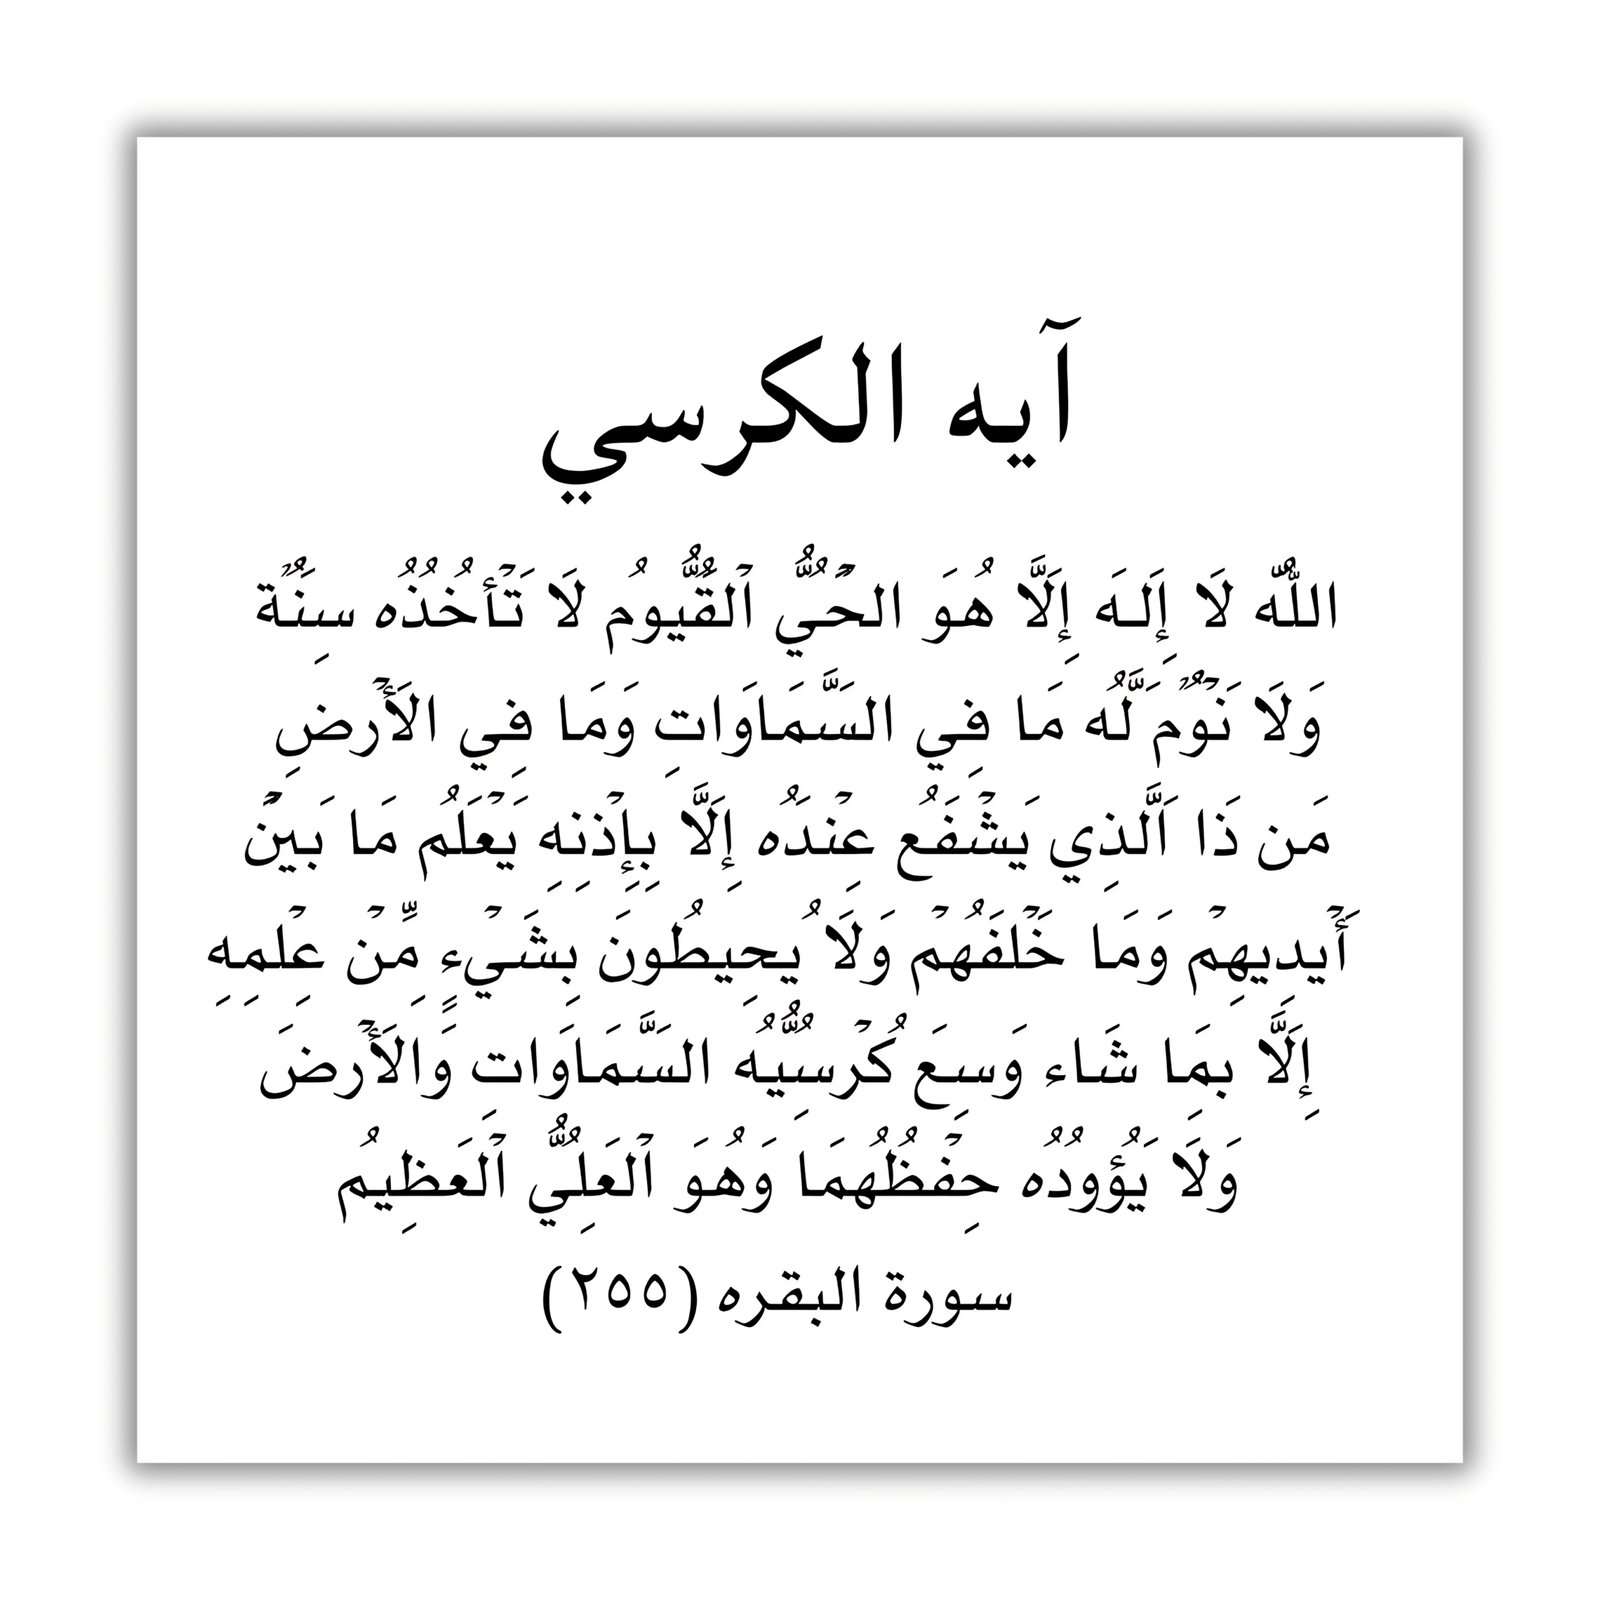 آيه الكرسي
اللّٰهُ لَا إِلَـهَ إِلَّا هُوَ الحَيُّ ٱلْقَيُّومُ لَا تَأْخُذُهُ سِنَةٌ
وَلَا نَوْمٌ لَّهُ مَا فِي السَّمَاوَاتِ وَمَا فِي الأَرْضِ
مَن ذَا ٱلَّذِي يَشْفَعُ عِنْدَهُ إِلَّا بِإِذْنِهِ يَعْلَمُ مَا بَينَْ
أَيْدِيهِمْ وَمَا خَلْفَهُمْ وَلَا يُحِيطُونَ بِشَيْءٍ مِّنْ عِلْمِهِ
إِلَّا بِمَا شَاء وَسِعَ كُرْسِيُّهُ السَّمَاوَاتِ وَالأَرْضَ
وَلَا يَؤُودُهُ حِفْظُهُمَا وَهُوَ ٱلْعَلِيُّ ٱلْعَظِيمُ
سورة البقره (٢٥٥)